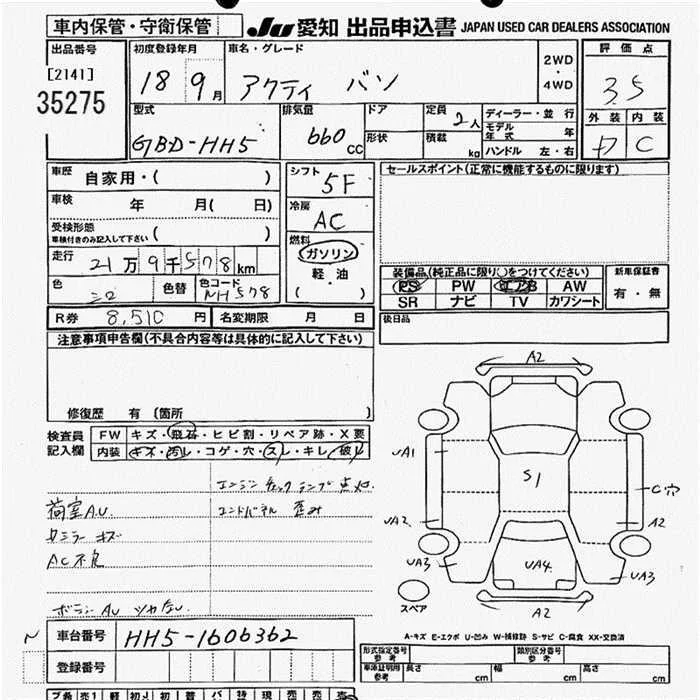 車内保管・守衛保管 JU 愛知 出品申込書 JAPAN USED CAR DEALERS ASSOCIATION
出品番号 初度登録年月 車名・グレード 2WD ・ 4WD 評価点
[2141] 18 9月 アクティ バン 3.5
35275
型式 排気量 ドア 定員 ディーラー・並行 外装 内装
GBD-HH5 660 cc 形状 2人 モデル年式 年
積載 kg ハンドル 左・右 C
車歴 自家用・( )
シフト 5F
セールスポイント(正常に機能するものに限ります)
車検 年 月( 日)
冷房 AC
受検形態
車検付きのみ記入して下さい ( )
燃料 ガソリン
軽・油
( )
走行 21万9千578km
装備品(純正品に限り○をつけてください) 新車保証書
色 シロ 色替 色コード NH578
PS PW エアB AW 有・無
SR ナビ TV カワシート
R券 8,510 円 名変期限 月 日
後日品
注意事項申告欄(不具合内容等は具体的に記入して下さい)
修復歴 有 (箇所 )
検査員 FW キズ・飛石・ヒビ割・リペア跡・X要
記入欄 内装 キズ・汚レ・コゲ・穴・スレ・キレ・破レ
エンジンチェックランプ点灯
荷室A.U. エンドパネル 歪み
キズ
AC不良
AU
A2
UA1
S1
C穴
UA2
A2
UA3
UA4
UA3
スペア
A2
A-キズ E-エクボ U-凹み W-補修跡 S-サビ C-腐食 XX-交換済
車台番号 HH5-1606362
登録番号
形式指定番号 参考 類別区分番号 参考
車庫証明用 参考 長さ cm 幅 cm 高さ cm